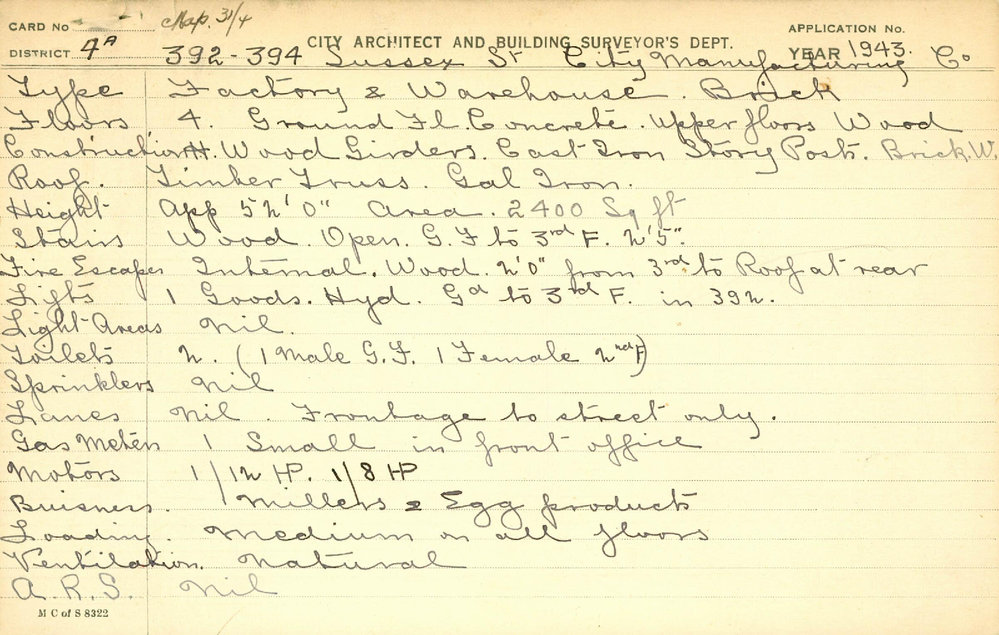 CARD No Map. 31/4 APPLICATION No.
DISTRICT 4A CITY ARCHITECT AND BUILDING SURVEYOR'S DEPT. YEAR 1943.
392-394 Sussex St City Manufacturing Co
Type Factory & Warehouse. Brick
Floors 4. Ground Fl. Concrete. Upper floors Wood
Construction Wood Girders. Cast Iron Story Posts. Brick.W.
Roof. Timber Truss. Gal Iron.
Height App 52'0" Area. 2400 Sq ft
Stairs Wood. Open. G.F to 3rd F. 2'5".
Fire Escapes Internal. Wood. 2'0" from 3rd to Roof at rear
Lifts 1 Goods. Hyd. Gd to 3rd F. in 392.
Light Areas Nil.
Toilets 2. (1 Male G.F. 1 Female 2nd F)
Sprinklers Nil
Lanes Nil. Frontage to street only.
Gas Meters 1 Small in front office
Motors 1/12 HP. 1/8 HP
Buisness. Millers & Egg products
Loading. Medium on all floors
Ventilation. Natural
A.R.S. Nil
M C of S 8322